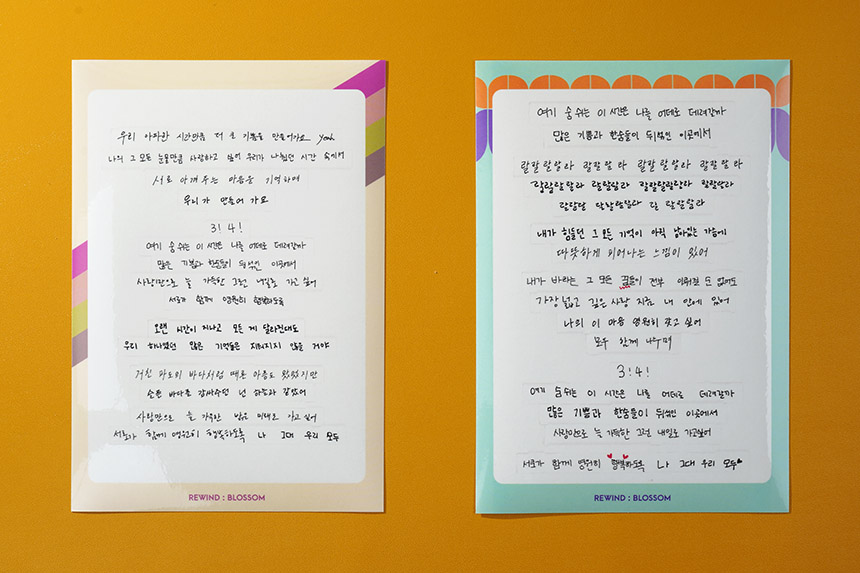 우리 아파한 시간만큼 더 큰 기쁨을 만들어가요 Yeah
나의 그 모든 눈물만큼 사랑하고 있어 우리가 나눴던 시간 속에서
서로 아껴주는 마음을 기억하며
우리가 만들어 가요
3! 4!
여기 숨 쉬는 이 시간은 나를 어데로 데려갈까
많은 기쁨과 한숨들이 뒤섞인 이곳에서
사랑만으로 늘 가득한 그런 내일로 가고 싶어
서로가 함께 영원히 행복하도록
오랜 시간이 지나고 모든 게 달라진대도
우리 하나였던 많은 기억들은 지워지지 않을 거야
거친 파도의 바다처럼 때론 아픔도 있었지만
슬픈 바다를 감싸주던 넌 하늘과 같았어
사랑만으로 늘 가득한 밝은 미래로 가고 싶어
서로가 함께 영원히 행복하도록 나 그대 우리 모두
REWIND : BLOSSOM
여기 숨 쉬는 이 시간은 나를 어데로 데려갈까
많은 기쁨과 한숨들이 뒤섞인 이곳에서
랄랄랄랄라 랄랄랄라 랄랄랄랄라 랄랄랄라
랄랄랄랄라 랄랄랄라 랄랄랄랄라 랄랄랄라
랄랄랄 랄랄랄랄라 랄 랄랄랄라
내가 힘들던 그 모든 기억이 아직 남아있는 가슴에
따뜻하게 피어나는 느낌이 있어
내가 바라는 그 모든 꿈들이 전부 이뤄질 순 없어도
가장 넓고 깊은 사랑 지금 내 안에 있어
나의 이 마음 영원히 갖고 싶어
모두 함께 나누며
3! 4!
여기 숨 쉬는 이 시간은 나를 어데로 데려갈까
많은 기쁨과 한숨들이 뒤섞인 이곳에서
사랑만으로 늘 가득한 그런 내일로 가고싶어
서로가 함께 영원히 행복하도록 나 그대 우리 모두
REWIND : BLOSSOM